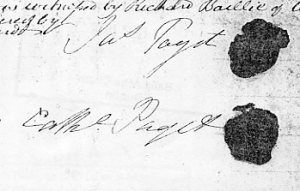 witnessed by Richard Baillie of
by
Jas Paget
Cathe. Paget